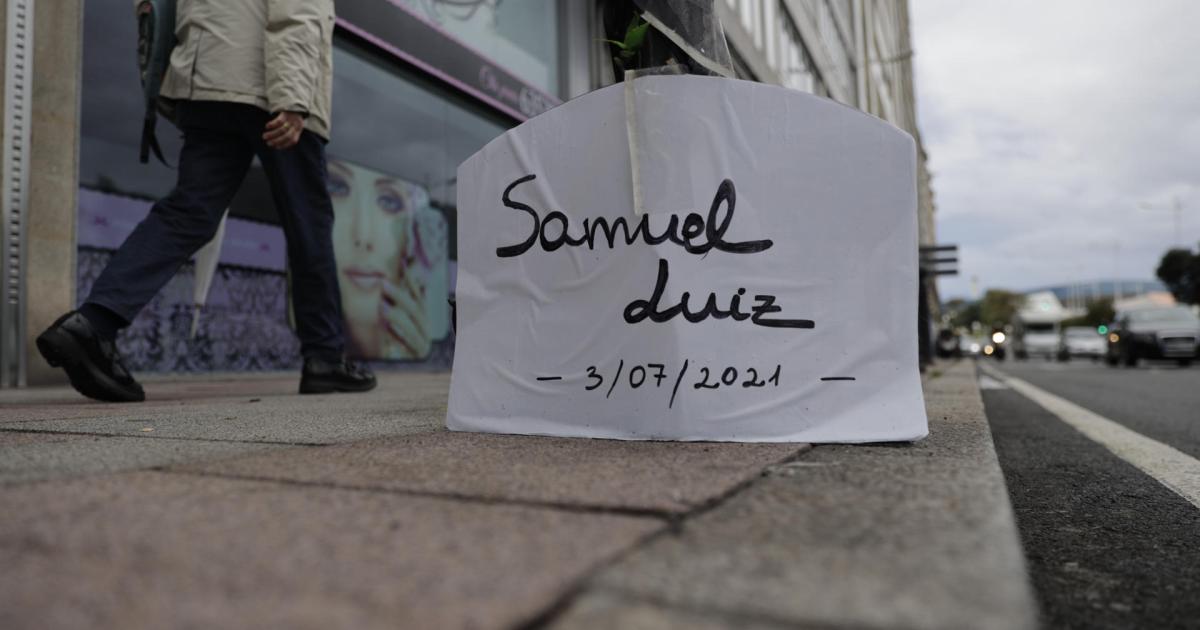 Samuel
Luiz
- 3/07/2021 -